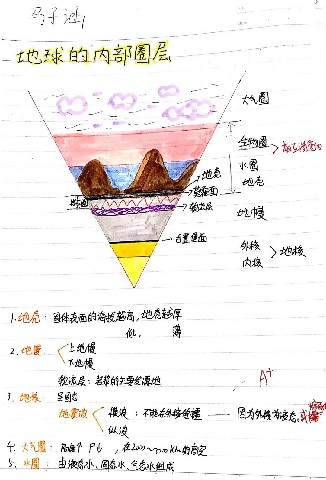 地球的内部圈层
大气圈
生物圈
水圈
地壳
地壳
莫霍面
软流层
地幔
古登堡面
外核
内核
地核
1. 地壳：固体表面的海拔越高，地壳越厚
低， 薄
2. 地幔
上地幔
下地幔
软流层：岩浆的主要发源地
3. 地核
地震波
横波：不能在外核传播
因为外核为液态
纵波
A+
4. 大气圈
5. 水圈：由液态水，固态水，气态水组成